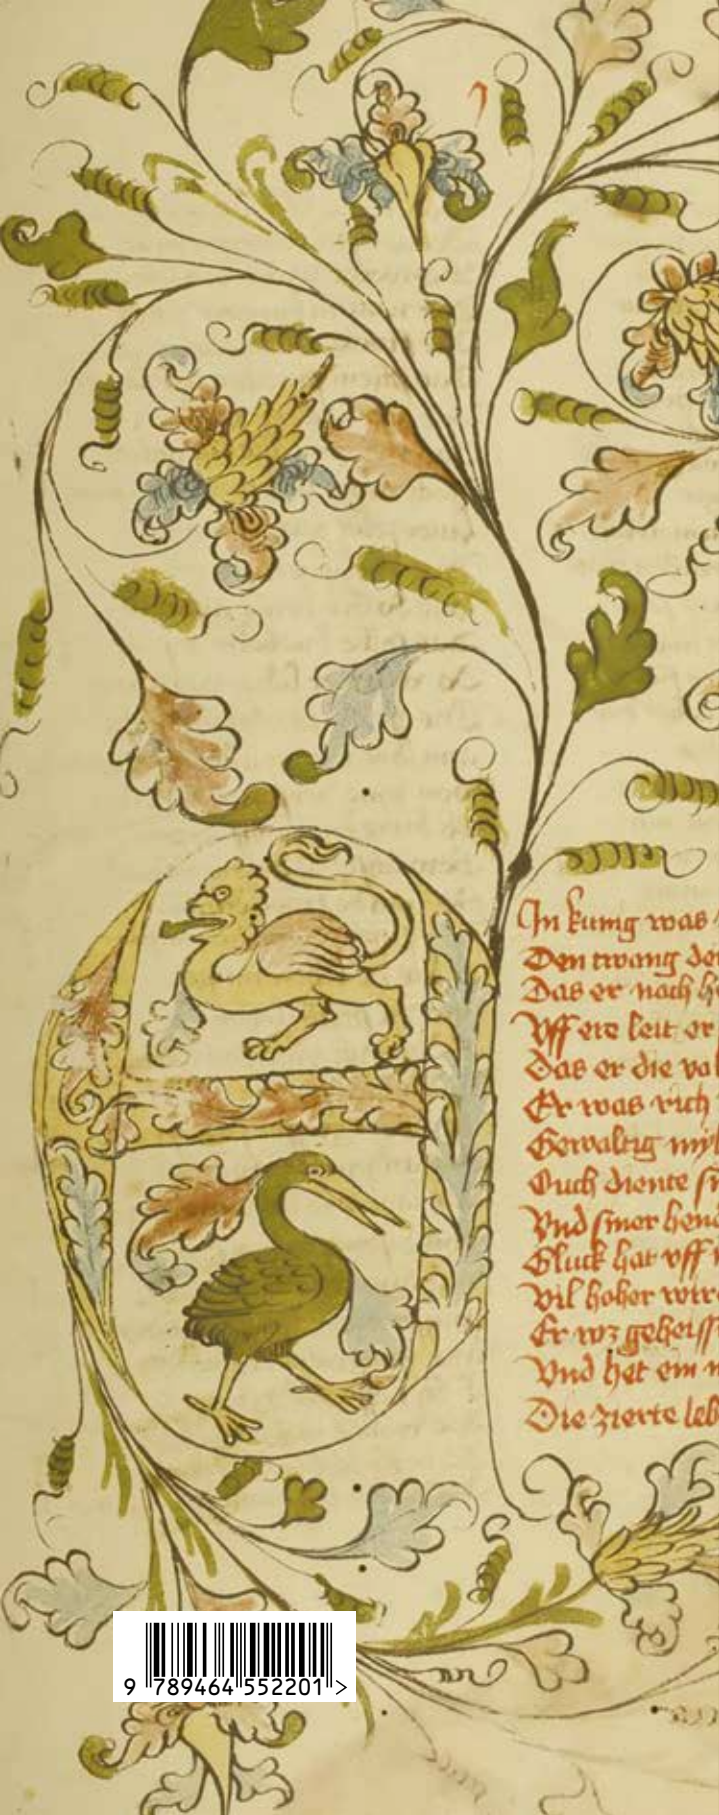 In kung was
Den twang de
Das er nach h
Vff ere leit er
Das er die va
Er was rich
Gewaltig my
Ouch diente si
Vnd siner hend
Gluck hat vff
Vil hoher wir
Er wz geheiss
Vnd het ein
Die zierte leb
9 789464 552201 >